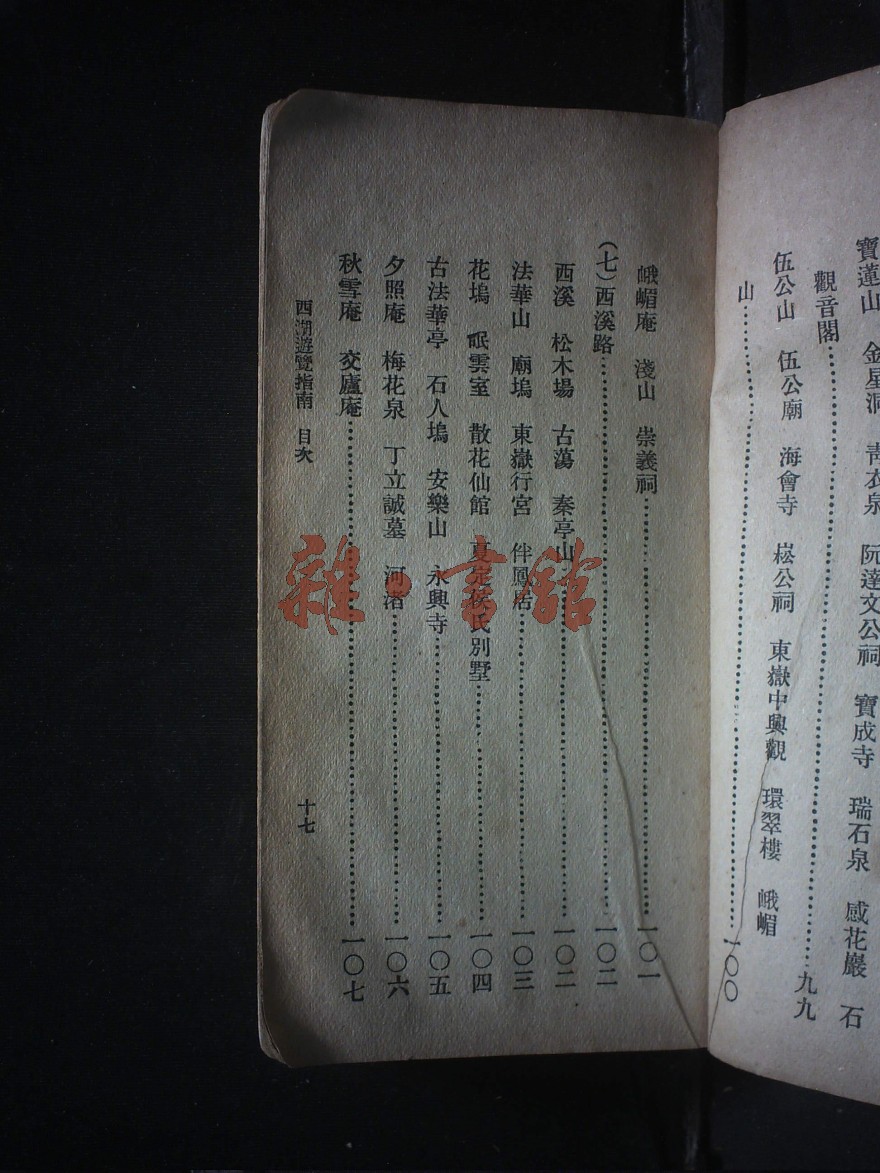 寶蓮山　金星洞　青衣泉　阮達文公祠　寶成寺　瑞石泉　感花巖　石
觀音閣……九九
伍公山　伍公廟　海會寺　崧公祠　東嶽中興觀　環翠樓　峨嵋
山……一〇〇
峨嵋庵　淺山　崇義祠……一〇一
(七)西溪路……一〇二
西溪　松木場　古蕩　秦亭山……一〇二
法華山　廟塢　東嶽行宮　伴鳳居……一〇三
花塢　眠雲室　散花仙館　夏定侯氏別墅……一〇四
古法華亭　石人塢　安樂山　永興寺……一〇五
夕照庵　梅花泉　丁立誠墓　河渚……一〇六
秋雪庵　交廬庵……一〇七
西湖遊覽指南　目次
十七
雜·書館